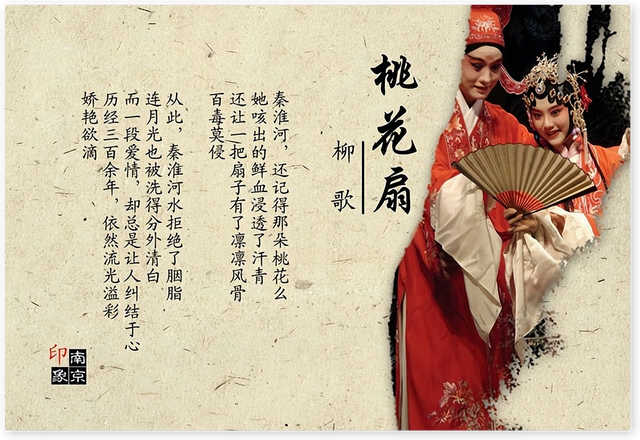 桃花扇
柳歌
秦淮河，还记得那朵桃花么
她咳出的鲜血浸透了汗青
还让一把扇子有了凛凛风骨
百毒莫侵
从此，秦淮河水拒绝了胭脂
连月光也被洗得分外清白
而一段爱情，却总是让人纠结于心
历经三百余年，依然流光溢彩
娇艳欲滴
南京
印象